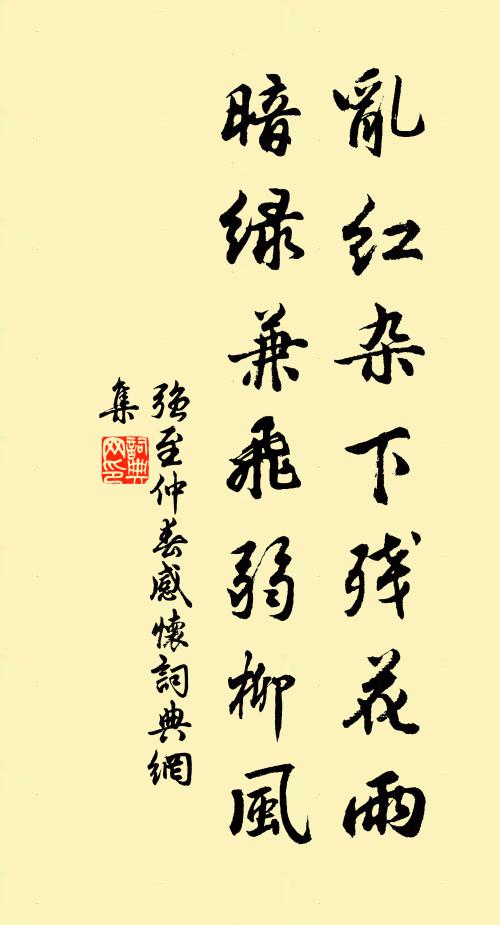 亂红杂下残花雨
暗绿兼飛弱柳風
强至仲春感懷詞典網
集
詞典
网印